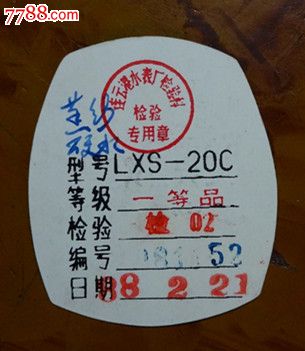 7788.com
连云港水表厂检验科
检验
专用章
型号LXS-20C
等级 一等品
检验 检02
编号
日期 88 2 21